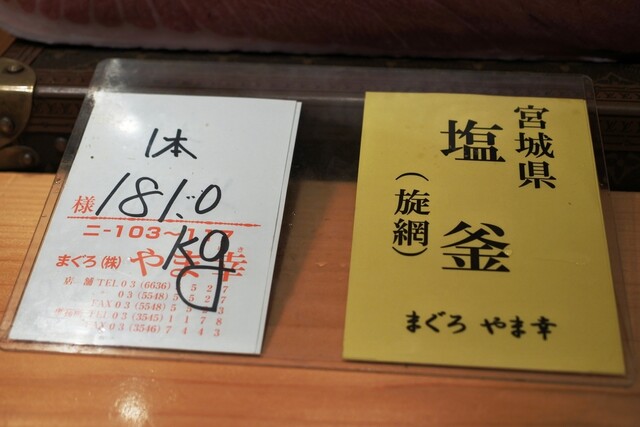 1本
様 181.0
kg
ニ-103~117
まぐろ(株) やま幸
店舗 TEL 03 (6636) 5 2 7
03 (5548) 5 5 2 7
FAX 03 (5548) 5 5 2 3
TEL 03 (3545) 1 1 7 8
FAX 03 (3546) 7 4 4 3
宮城県
塩釜
(旋網)
まぐろ やま幸